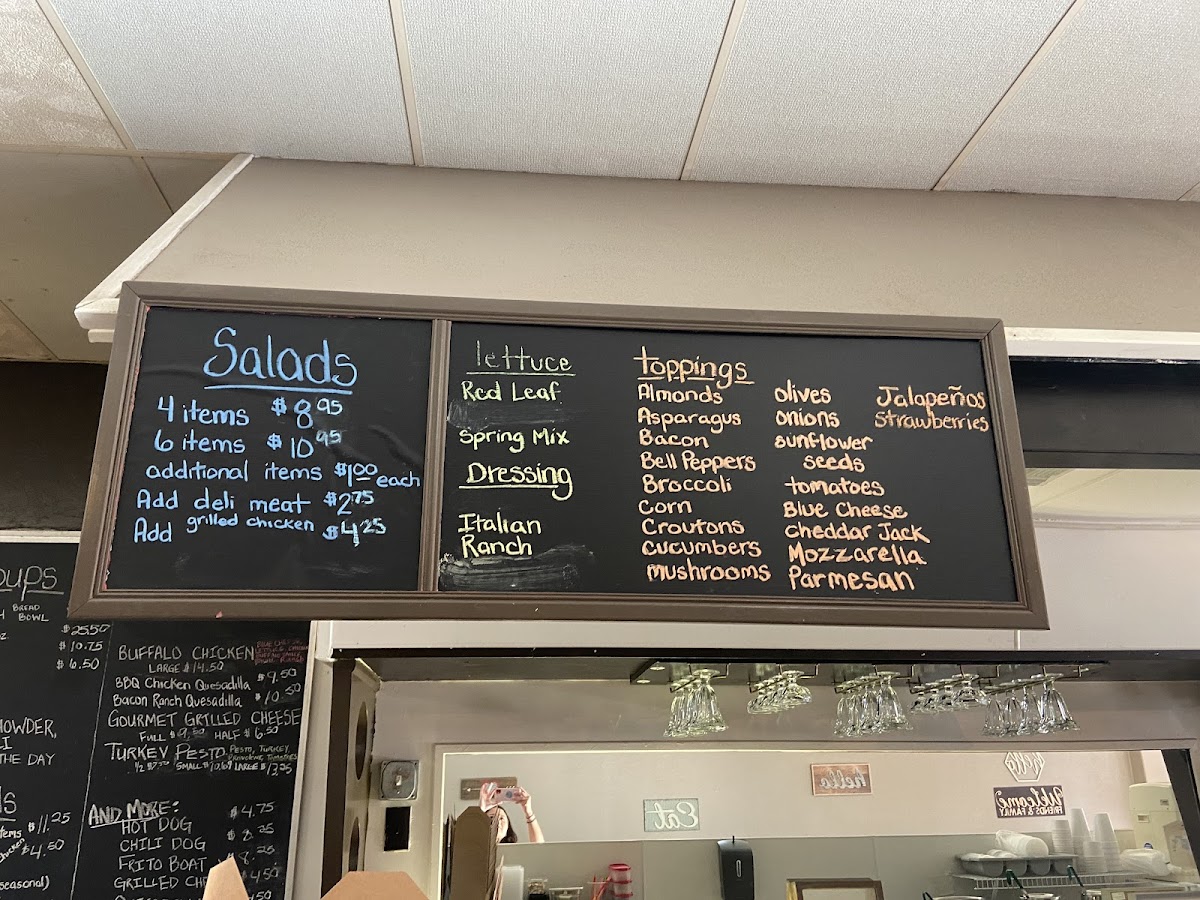 Salads
4 items $8.95
6 items $10.95
additional items $1.00 each
Add deli meat $2.75
Add grilled chicken $4.25
lettuce
Red Leaf
Spring Mix
Dressing
Italian
Ranch
toppings
Almonds
Asparagus
Bacon
Bell Peppers
Broccoli
Corn
Croutons
cucumbers
mushrooms
olives
onions
sunflower
seeds
tomatoes
Blue Cheese
cheddar Jack
Mozzarella
Parmesan
Jalapeños
Strawberries
oups
BREAD
BOWL
$25.50
$10.75
$6.50
HOWDER,
THE DAY
$11.25
$4.50
seasonal)
BUFFALO CHICKEN
LARGE $14.50
BBQ Chicken Quesadilla $9.50
Bacon Ranch Quesadilla $10.50
GOURMET GRILLED CHEESE
FULL $9.50 HALF $6.50
TURKEY PESTO PESTO, TURKEY,
PROVOLONE, TOMATOES
AND MORE:
HOT DOG $4.75
CHILI DOG $8.25
FRITO BOAT
GRILLED
hello
Eat
hello
Welcome
FRIENDS & FAMILY